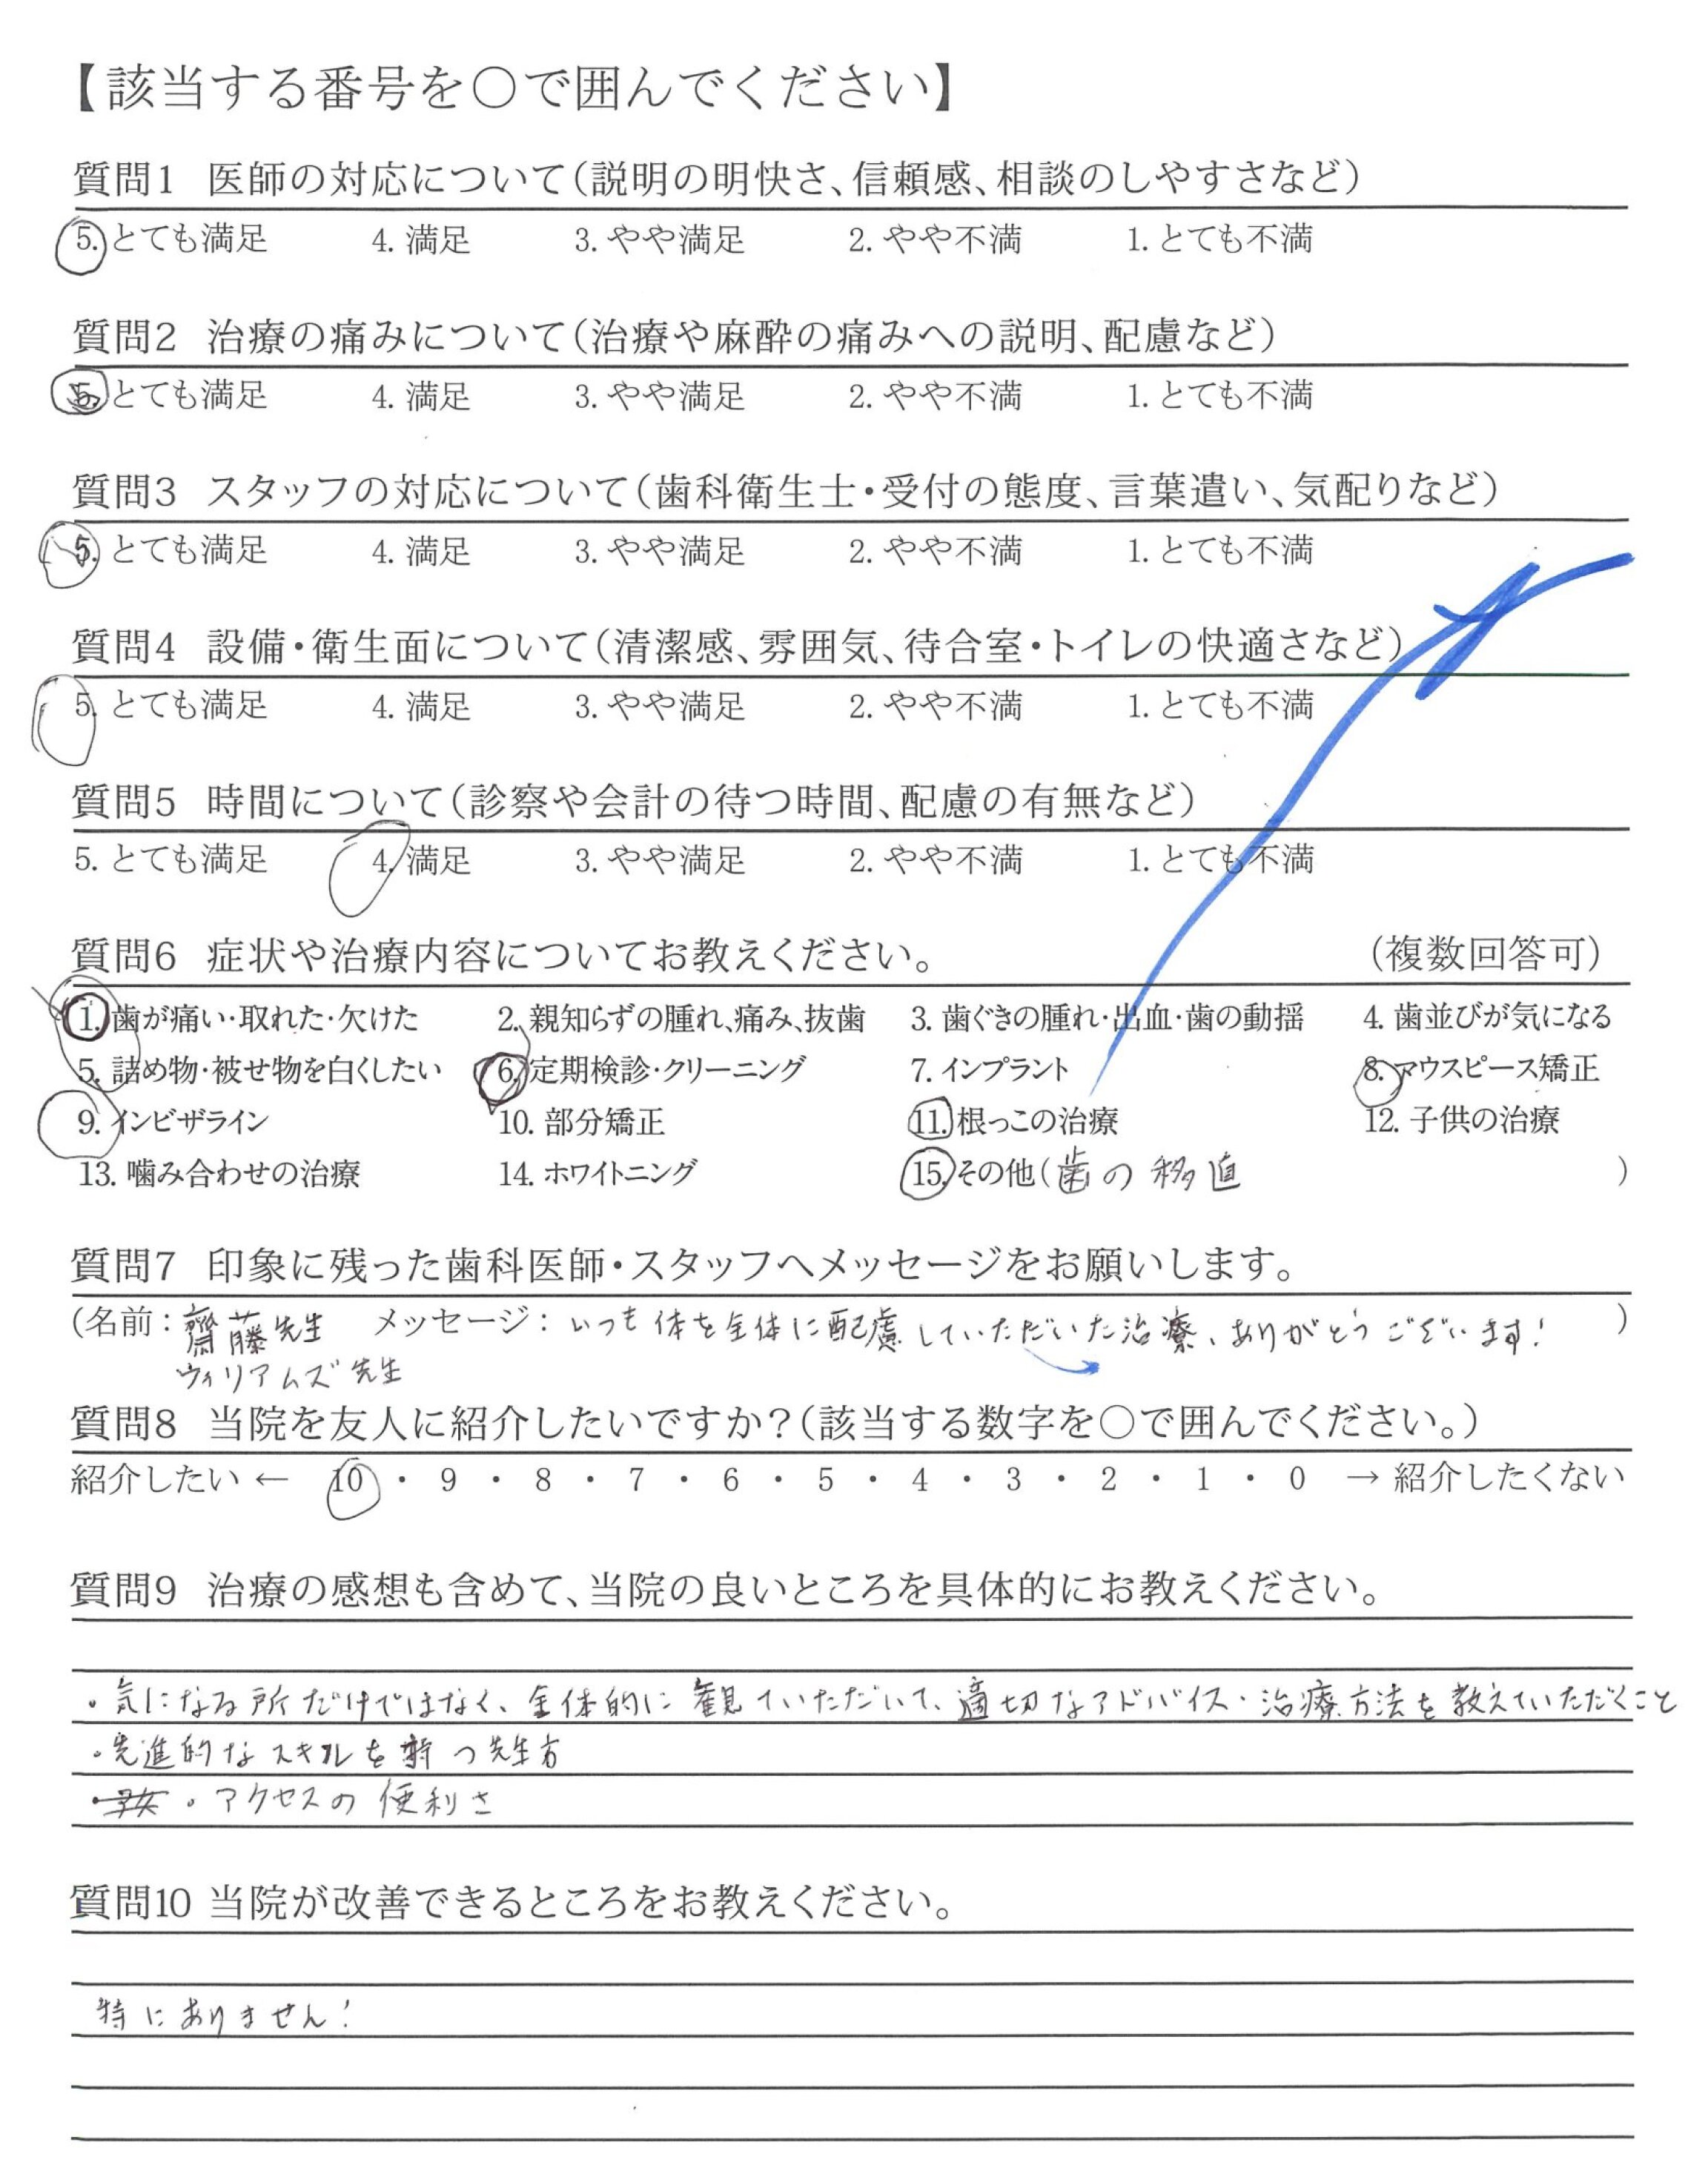 【該当する番号を〇で囲んでください】
質問1 医師の対応について(説明の明快さ、信頼感、相談のしやすさなど)
5. とても満足 4. 満足 3. やや満足 2. やや不満 1. とても不満
質問2 治療の痛みについて(治療や麻酔の痛みへの説明、配慮など)
5. とても満足 4. 満足 3. やや満足 2. やや不満 1. とても不満
質問3 スタッフの対応について(歯科衛生士・受付の態度、言葉遣い、気配りなど)
5. とても満足 4. 満足 3. やや満足 2. やや不満 1. とても不満
質問4 設備・衛生面について(清潔感、雰囲気、待合室・トイレの快適さなど)
5. とても満足 4. 満足 3. やや満足 2. やや不満 1. とても不満
質問5 時間について(診察や会計の待つ時間、配慮の有無など)
5. とても満足 4. 満足 3. やや満足 2. やや不満 1. とても不満
質問6 症状や治療内容についてお教えください。 (複数回答可)
1. 歯が痛い・取れた・欠けた 2. 親知らずの腫れ、痛み、抜歯 3. 歯ぐきの腫れ・出血・歯の動揺 4. 歯並びが気になる
5. 詰め物・被せ物を白くしたい 6. 定期検診・クリーニング 7. インプラント 8. マウスピース矯正
9. インビザライン 10. 部分矯正 11. 根っこの治療 12. 子供の治療
13. 噛み合わせの治療 14. ホワイトニング 15. その他(歯の移植 )
質問7 印象に残った歯科医師・スタッフへメッセージをお願いします。
(名前:齋藤先生 メッセージ:いつも体を全体に配慮していただいた治療、ありがとうございます! )
ウィリアムズ先生
質問8 当院を友人に紹介したいですか?(該当する数字を〇で囲んでください。)
紹介したい ← 10 ・ 9 ・ 8 ・ 7 ・ 6 ・ 5 ・ 4 ・ 3 ・ 2 ・ 1 ・ 0 → 紹介したくない
質問9 治療の感想も含めて、当院の良いところを具体的にお教えください。
・気になる所だけではなく、全体的に観ていただいて、適切なアドバイス・治療方法を教えていただくこと
・先進的なスキルを持つ先生方
・アクセスの便利さ
質問10 当院が改善できるところをお教えください。
特にありません!